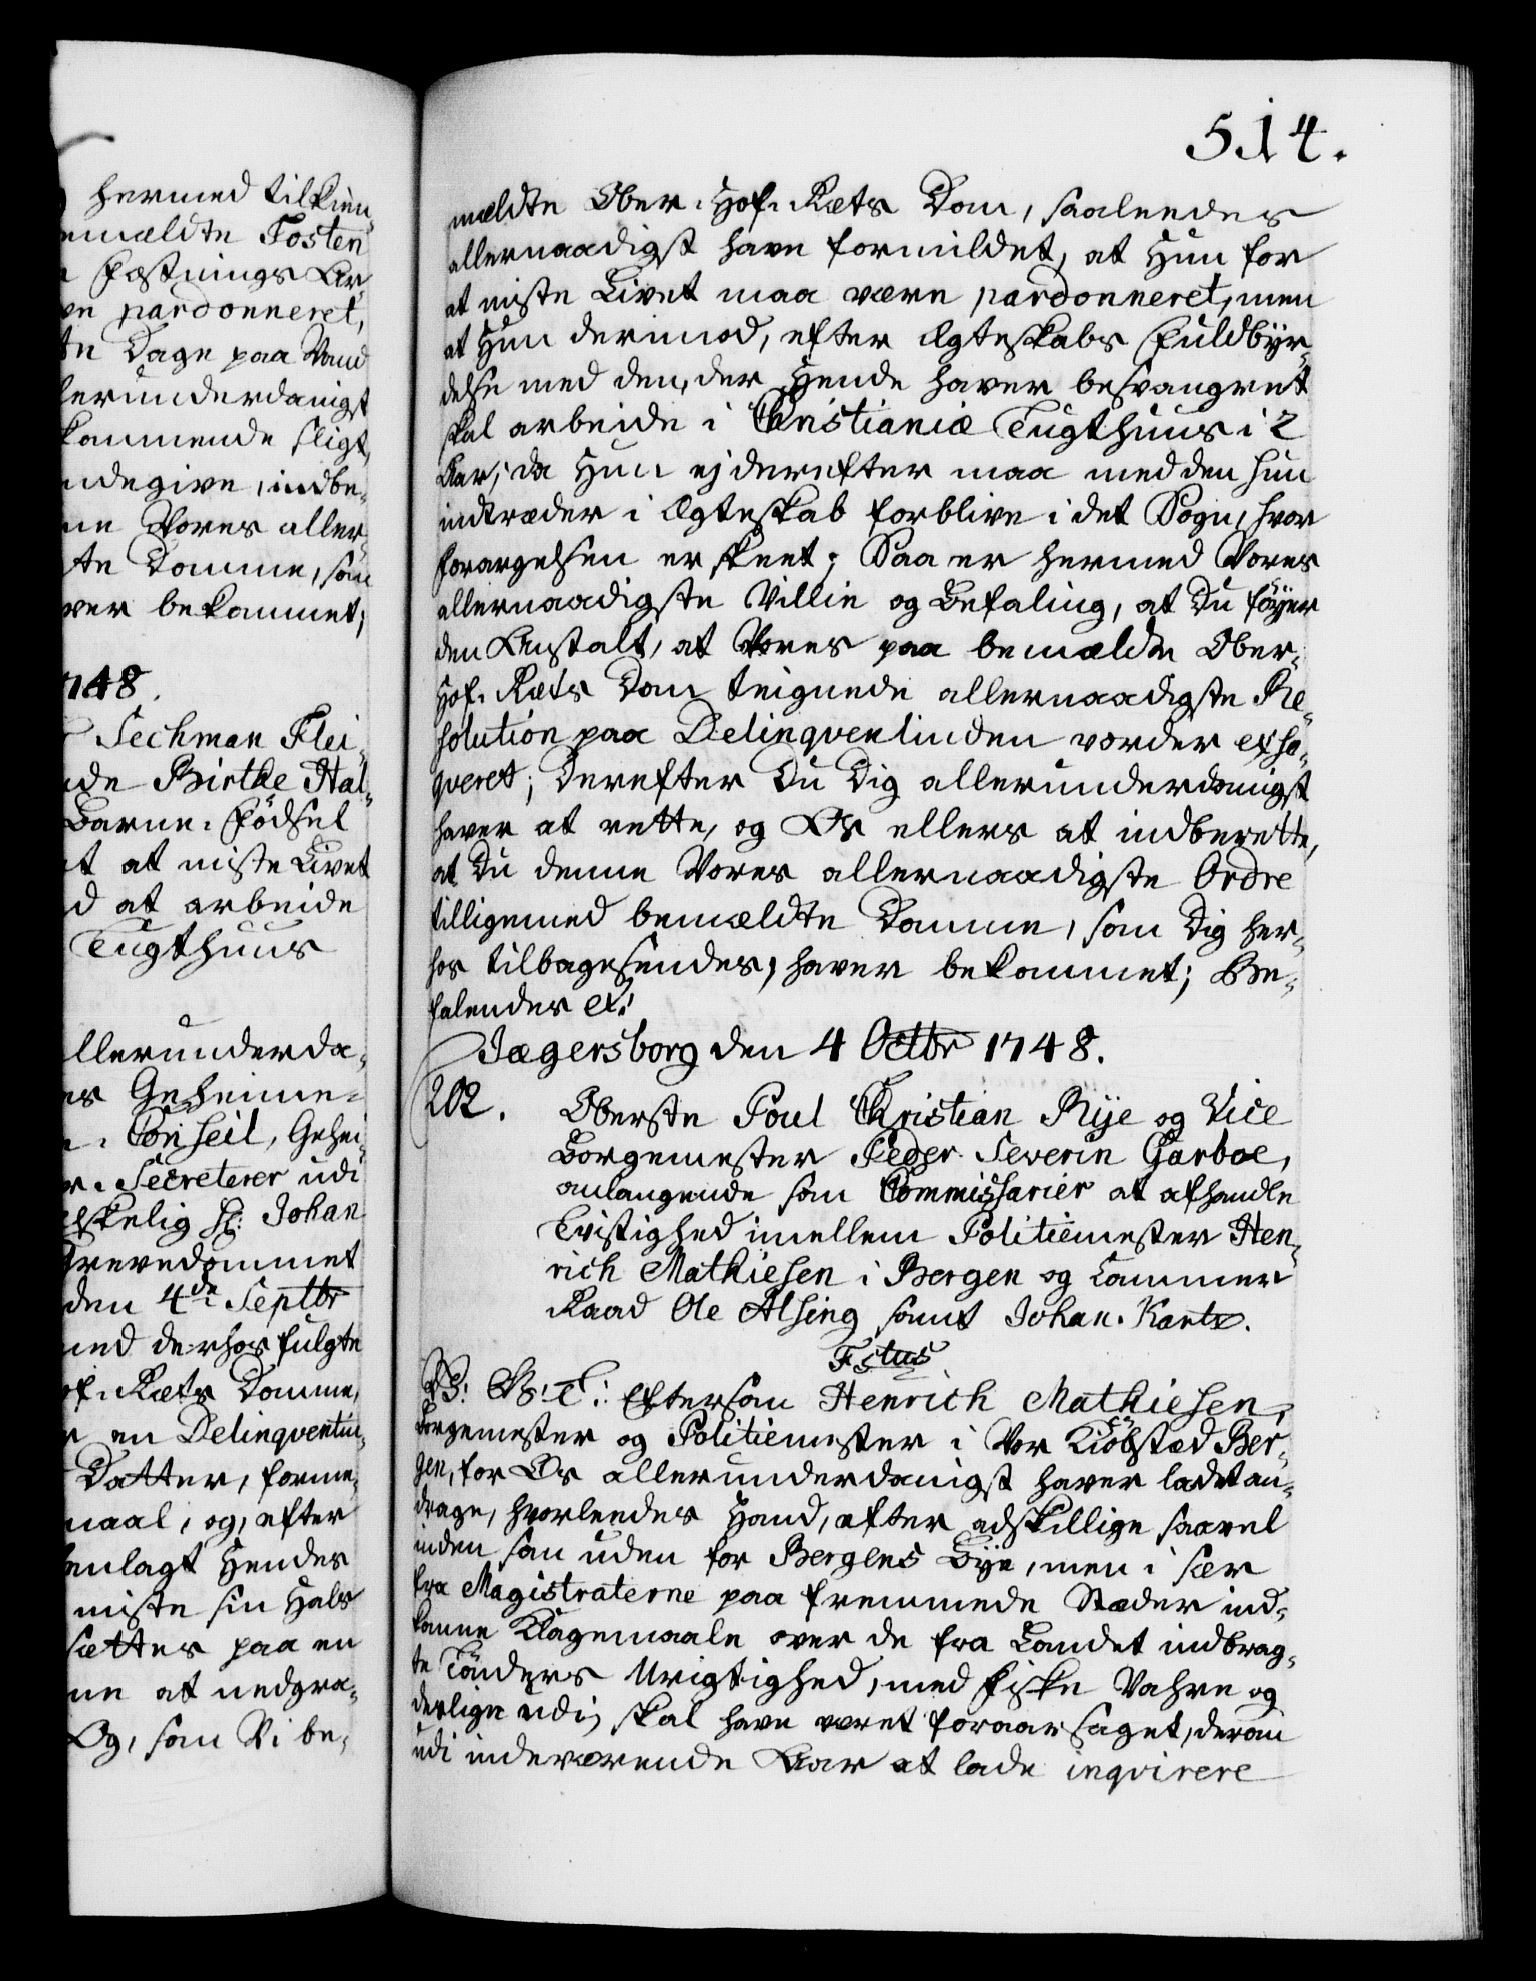 hermed tilkien¬
emældte Tosten
Fæstnings Ar¬
ve pardonneret,
te Dage paa Vand
lerunderdanigst
kommende sligt,
ndegive, indbe¬
ne Vores aller¬
te Domme, som
ver bekommet;
1748.
Sechman Flei¬
nde Birthe Hal¬
Barne-Fødsel
t at miste Livet
d at arbeide
Tugthuus
llerunderda¬
es Geheime¬
Conseil, Gehei¬
r. Secreterer udi
elskelig Hr: Johan
Grevedommet
den 4de Septbr
med derhos fulgte
of-Ræts Domme,
r en Delinqventin¬
Datter, forme¬
maal, og, efter
enlagt Hendes
miste sin Hals
sættes paa en
ne at nedgra¬
Og, som Vi be¬
514.
mældte Ober-Hof-Ræts Dom, saaleedes
allernaadigst have formildet, at Hun for
at miste Livet maa være pardonneret, men
at Hun derimod, efter Ægteskabs Fuldbyr¬
delse med den, der Hende haver besvangret
skal arbeide i Christianiæ Tugthuus i 2
Aar, da Hun ej derefter maa med den hun
indtræder i Ægteskab forblive i det Sogn, hvor
forargelsen er skeet; Saa er hermed Vores
allernaadigste Villie og Befaling, at Du föyer
den Anstalt, at Vores paa bemældte Ober¬
Hof-Ræts Dom teignede allernaadigste Re¬
solution paa Delinqventinden vorder exse¬
qveret; Derefter Du Dig allerunderdanigst
haver at rette, og Os ellers at indberette,
at Du denne Vores allernaadigste Ordre
tilligemed bemældte Domme, som Dig her¬
hos tilbagesendes, haver bekommet; Be¬
falendes etc:
Jægersborg den 4 Octbr 1748.
202. Oberste Poul Christian Rije og Vice
Borgemester Peder Severin Garboe,
anlangende som Commissarier at afhandle
Tvistighed imellem Politiemester Hen¬
rich Mathiesen i Bergen og Cammer
Raad Ole Alsing samt Johan Kartz.
F 5tus
V: G: T: Eftersom Henrich Mathiesen,
Borgemester og Politiemester i Vor Kiöbstæd Ber¬
gen, for Os allerunderdanigst haver ladet an¬
drage, hvorleedes Hand, efter adskillige saavel
inden som uden for Bergens Bye, men i sær
fra Magistraterne paa fremmede Stæder ind¬
komne Klagemaale over de fra Landet indbrag¬
te Tönders Urigtighed, med Fiske Vahre og
deslige udi, skal have været foraarsaget, derom
udi indeværende Aar at lade inqvirere